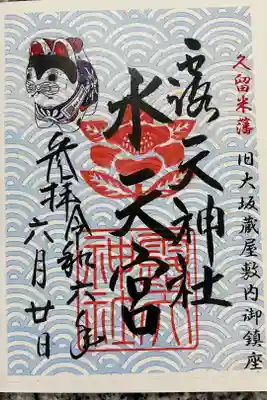 久留米藩
旧大坂蔵屋敷内御鎮座
露天神社
水天宮
参拝令和六年
六月廿日